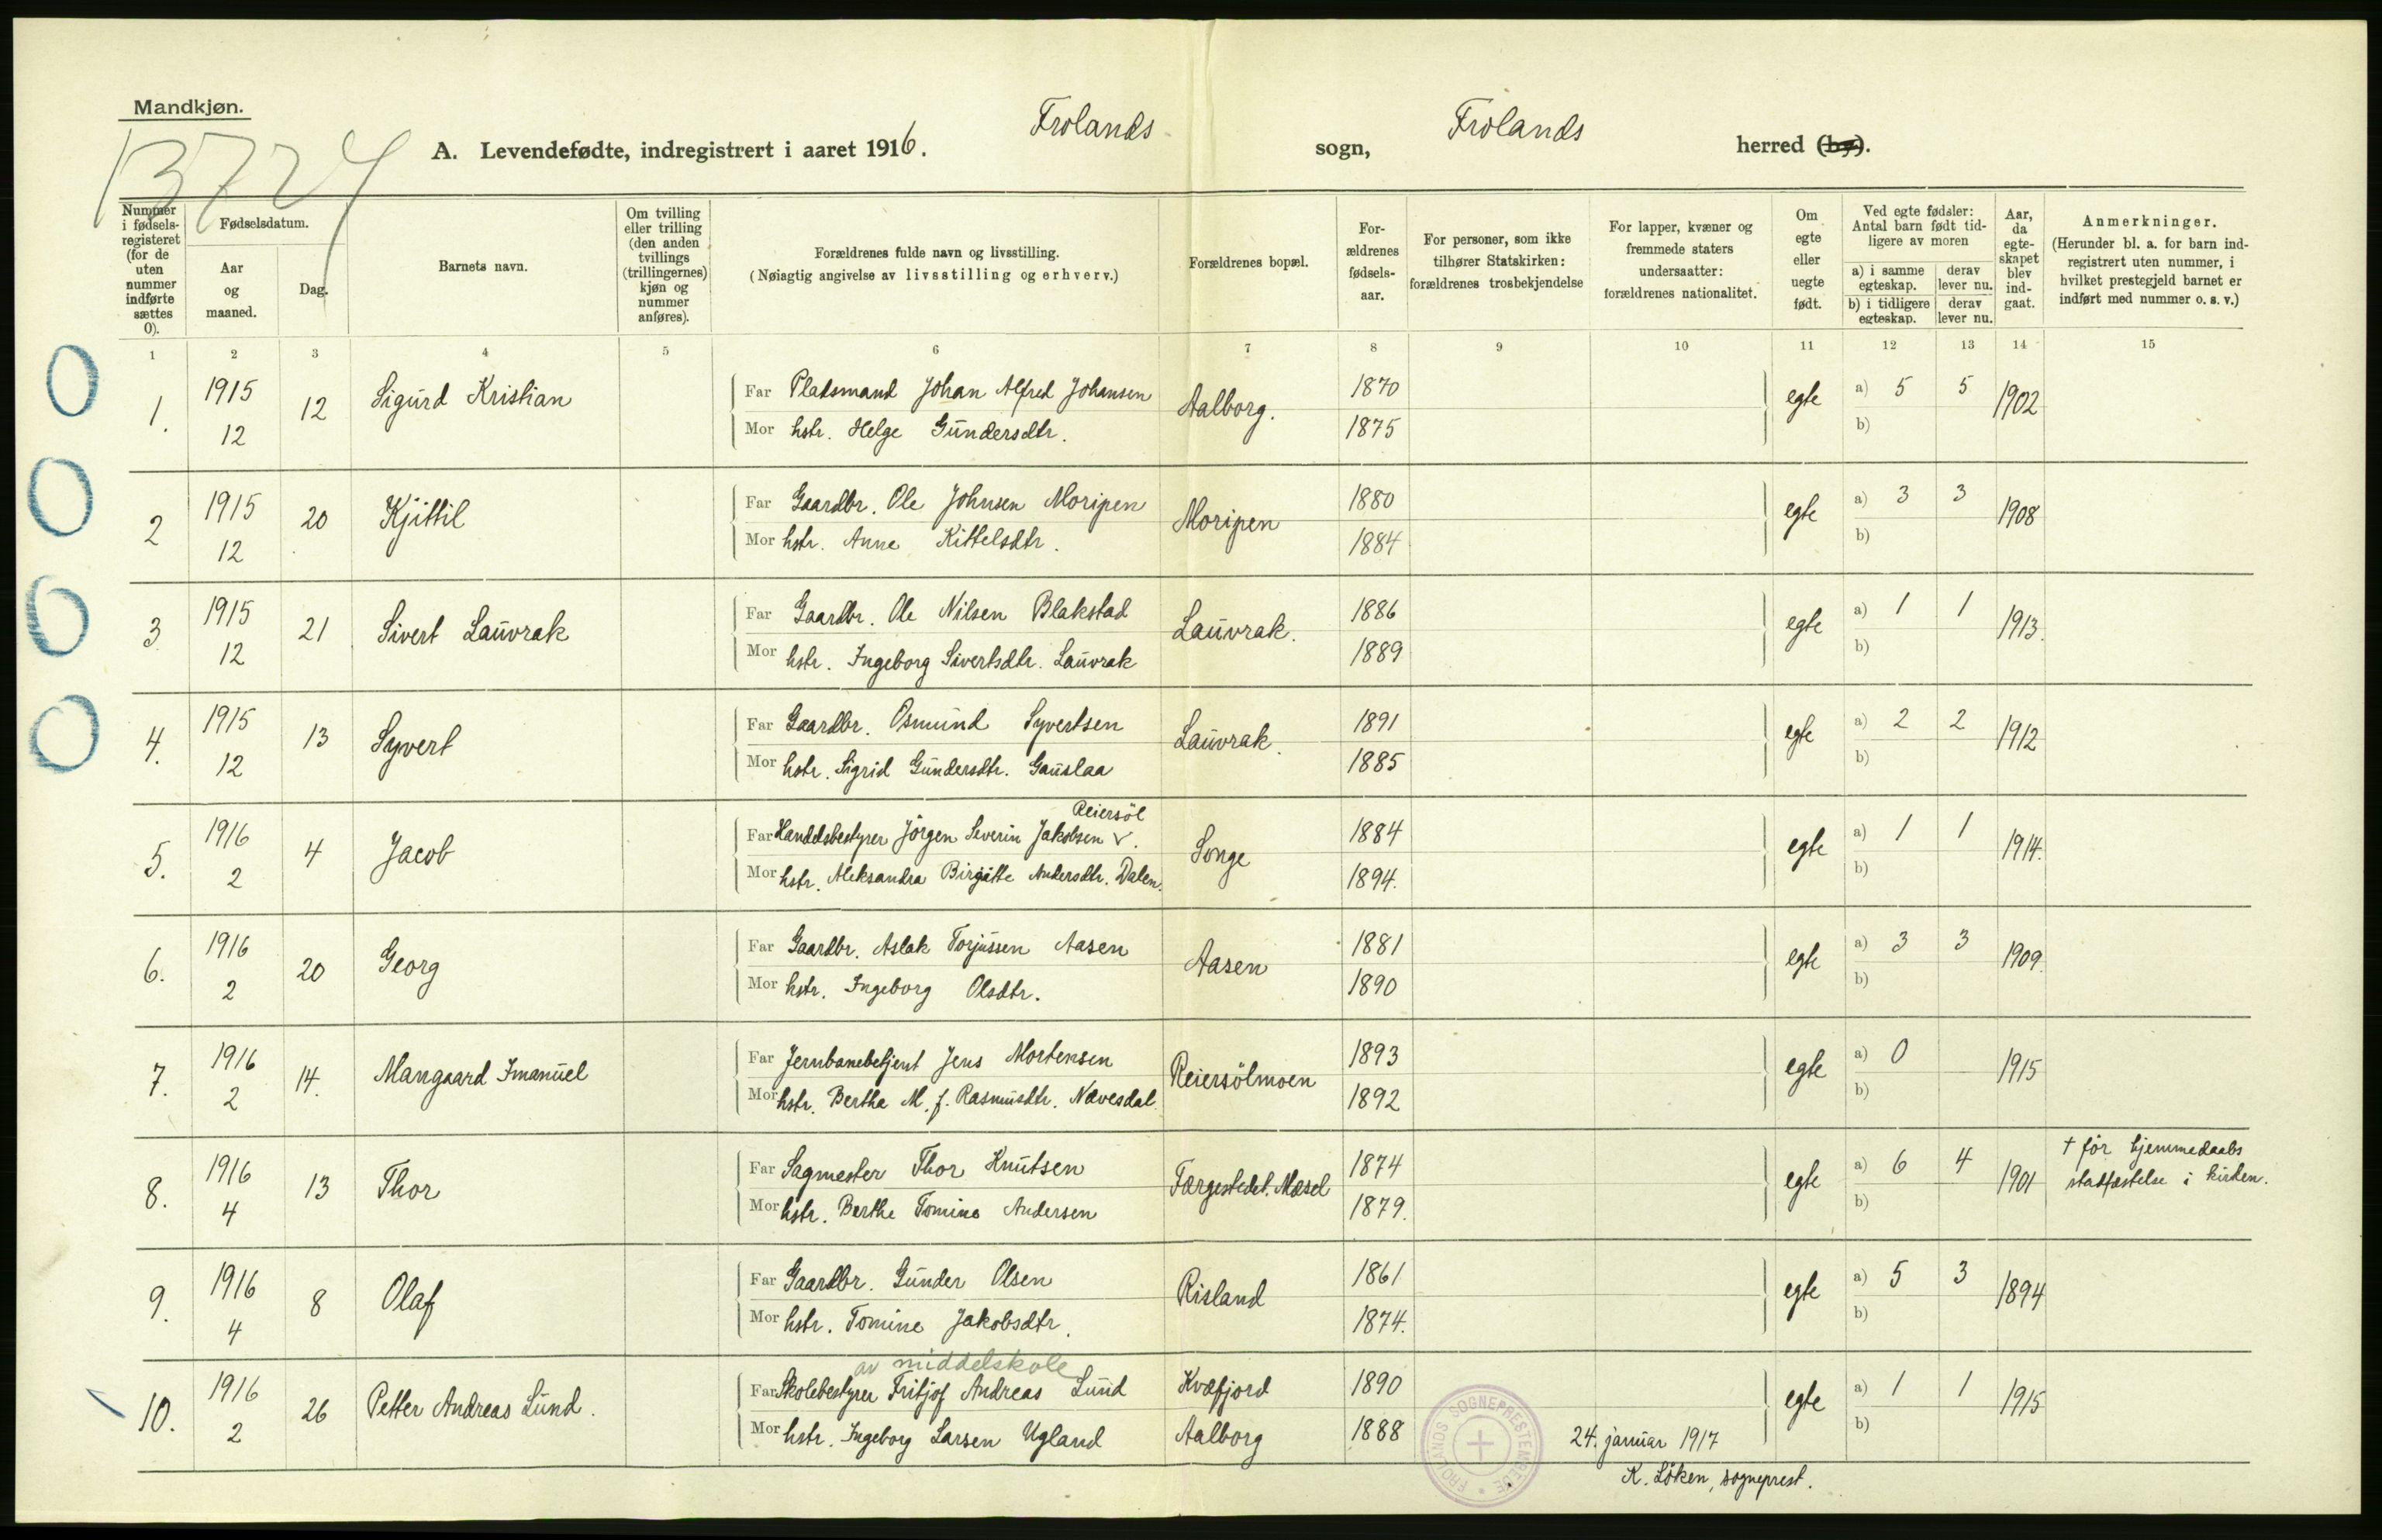 Mandkjøn.
13724
A. Levendefødte, indregistrert i aaret 1916. Frolands sogn, Frolands herred (by).
Nummer i fødselsregisteret (for de uten nummer indførte sættes 0).
Fødselsdatum.
Aar og maaned.
Dag.
Barnets navn.
Om tvilling eller trilling (den anden tvillings (trillingernes) kjøn og nummer anføres).
Forældrenes fulde navn og livsstilling.
(Nøiagtig angivelse av livsstilling og erhverv.)
Forældrenes bopæl.
Forældrenes fødselsaar.
For personer, som ikke tilhører Statskirken: forældrenes trosbekjendelse
For lapper, kvæner og fremmede staters undersaatter: forældrenes nationalitet.
Om egte eller uegte født.
Ved egte fødsler: Antal barn født tidligere av moren
a) i samme egteskap. derav lever nu.
b) i tidligere egteskap. derav lever nu.
Aar, da egteskapet blev indgaat.
Anmerkninger.
(Herunder bl. a. for barn indregistrert uten nummer, i hvilket prestegjeld barnet er indført med nummer o. s. v.)
1 2 3 4 5 6 7 8 9 10 11 12 13 14 15
0 1. 1915 12 12 Sigurd Kristian Far Pladsmand Johan Alfred Johansen Aalborg. 1870 egte a) 5 5 1902
Mor hstr. Helge Gundersdtr. 1875 b)
0 2 1915 12 20 Kjittil Far Gaardbr. Ole Johnsen Moripen Moripen 1880 egte a) 3 3 1908
Mor hstr. Anne Kittelsdtr. 1884 b)
0 3 1915 12 21 Sivert Lauvrak Far Gaardbr. Ole Nilsen Blakstad Lauvrak. 1886 egte a) 1 1 1913.
Mor hstr. Ingeborg Sivertsdtr. Lauvrak 1889 b)
0 4. 1915 12 13 Syvert Far Gaardbr. Osmund Syvertsen Lauvrak. 1891 egte a) 2 2 1912
Mor hstr. Sigrid Gundersdtr. Gauslaa 1885 b)
Reiersöl
5. 1916 2 4 Jacob Far Handelsbestyrer Jörgen Severin Jakobsen v. Songe 1884 egte a) 1 1 1914.
Mor hstr. Aleksandra Birgitte Andersdtr. Dalen. 1894. b)
6. 1916 2 20 Georg Far Gaardbr. Aslak Torjussen Aasen Aasen 1881 egte a) 3 3 1909.
Mor hstr. Ingeborg Olsdtr. 1890 b)
7. 1916 2 14. Mangaard Imanuel Far Jernbanebetjent Jens Mortensen Reiersölmoen 1893 egte a) 0 1915
Mor hstr. Bertha M. f. Rasmusdtr. Nævesdal 1892 b)
8. 1916 4 13 Thor Far Sagmester Thor Knutsen Færgestedet. Mæsel 1874 egte a) 6 4 1901 † før hjemmedaabs
Mor hstr. Berthe Tomine Andersen 1879. b) stadfæstelse i kirken.
9. 1916 4 8 Olaf Far Gaardbr. Gunder Olsen Risland 1861 egte a) 5 3 1894
Mor hstr. Tomine Jakobsdtr. 1874. b)
av middelskole
10. 1916 2 26 Petter Andreas Lund. Far Skolebestyrer Fritjof Andreas Lund Kvæfjord 1890 egte a) 1 1 1915
Mor hstr. Ingeborg Larsen Ugland Aalborg 1888 b)
FROLANDS SOGNEPRESTEMBEDE
24. januar 1917
K. Löken, sogneprest.